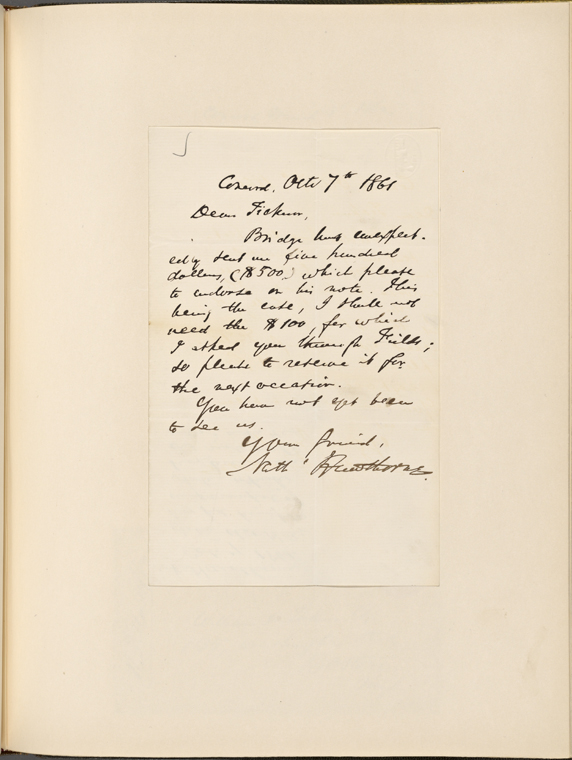 Concord, Octr 7th 1861
Dear Ticknor,
Bridge has unexpect-
edly sent me five hundred
dollars, ($500.) which please
to endorse on his note. This
being the case, I shall not
need the $100, for which
I asked you through Fields;
so please to reserve it for
the next occasion.
You have not yet been
to see us.
Your friend,
Nathl Hawthorne.